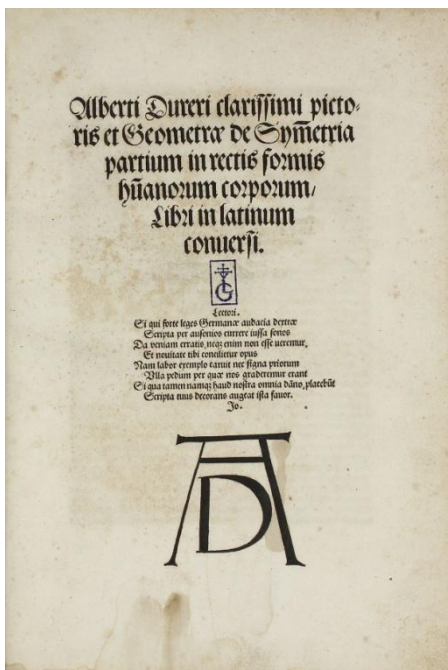 Alberti Dureri clarissimi picto-
ris et Geometræ de Sym̄etria
partium in rectis formis
hūanorum corporum/
Libri in latinum
conuersi.
G
Lectori.
Si qui forte leges Germanæ audacia dextræ
Scripta per ausonios currere iussa sonos
Da veniam erratis, neqꝫ enim non esse veremur,
Et nouitate tibi concilietur opus
Nam labor exemplo caruit nec signa priorum
Vlla pedum per quæ nos graderemur erant
Si qua tamen namqꝫ haud nostra omnia dāno, placebūt
Scripta tuus decorans augeat ista fauor.
Jo.
AD